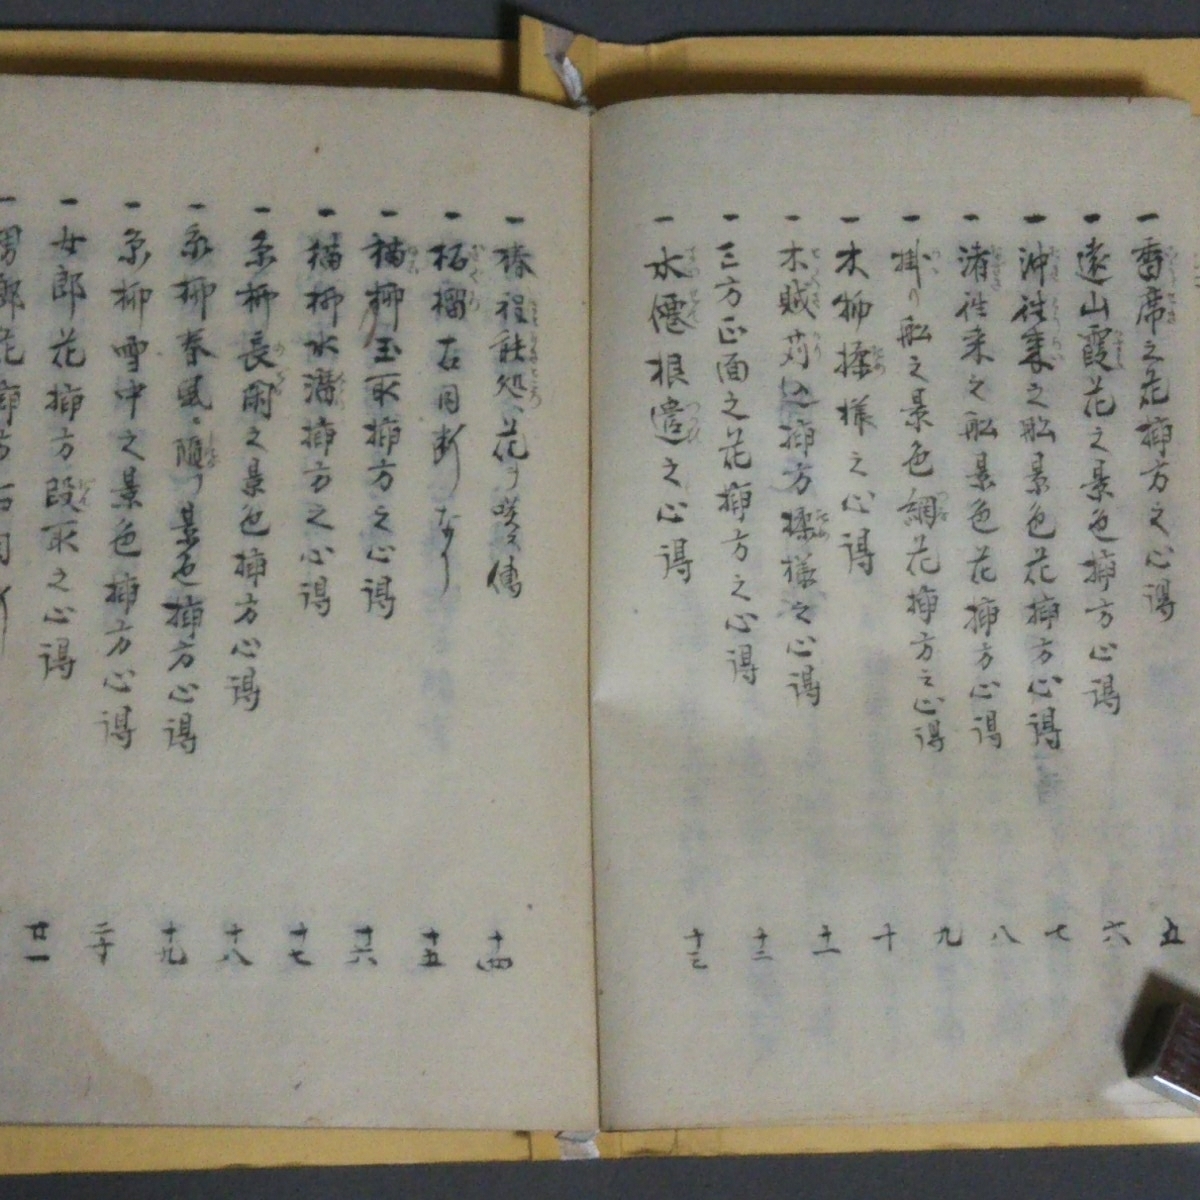 一 香席之花揷方之心得 五
一 遠山霞花之景色揷方心得 六
一 沖往来之舩景色花揷方心得 七
一 渚往来之舩景色花揷方心得 八
一 掛リ舩之景色網花揷方之心得 九
一 木物揉様之心得 十
一 木賊苅込揷方揉様之心得 十一
一 三方正面之花揷方之心得 十二
一 水僊根遣之心得 十三
一 椿程能処花ヲ咲ス傳 十四
一 柘榴右同断なり 十五
一 猫柳玉取揷方之心得 十六
一 猫柳水潜揷方之心得 十七
一 糸柳長閑之景色揷方心得 十八
一 糸柳春風隨フ景色揷方心得 十九
一 糸柳雪中之景色揷方心得 二十
一 女郎花揷方段取之心得 廿一
一 男郎花揷方右同断